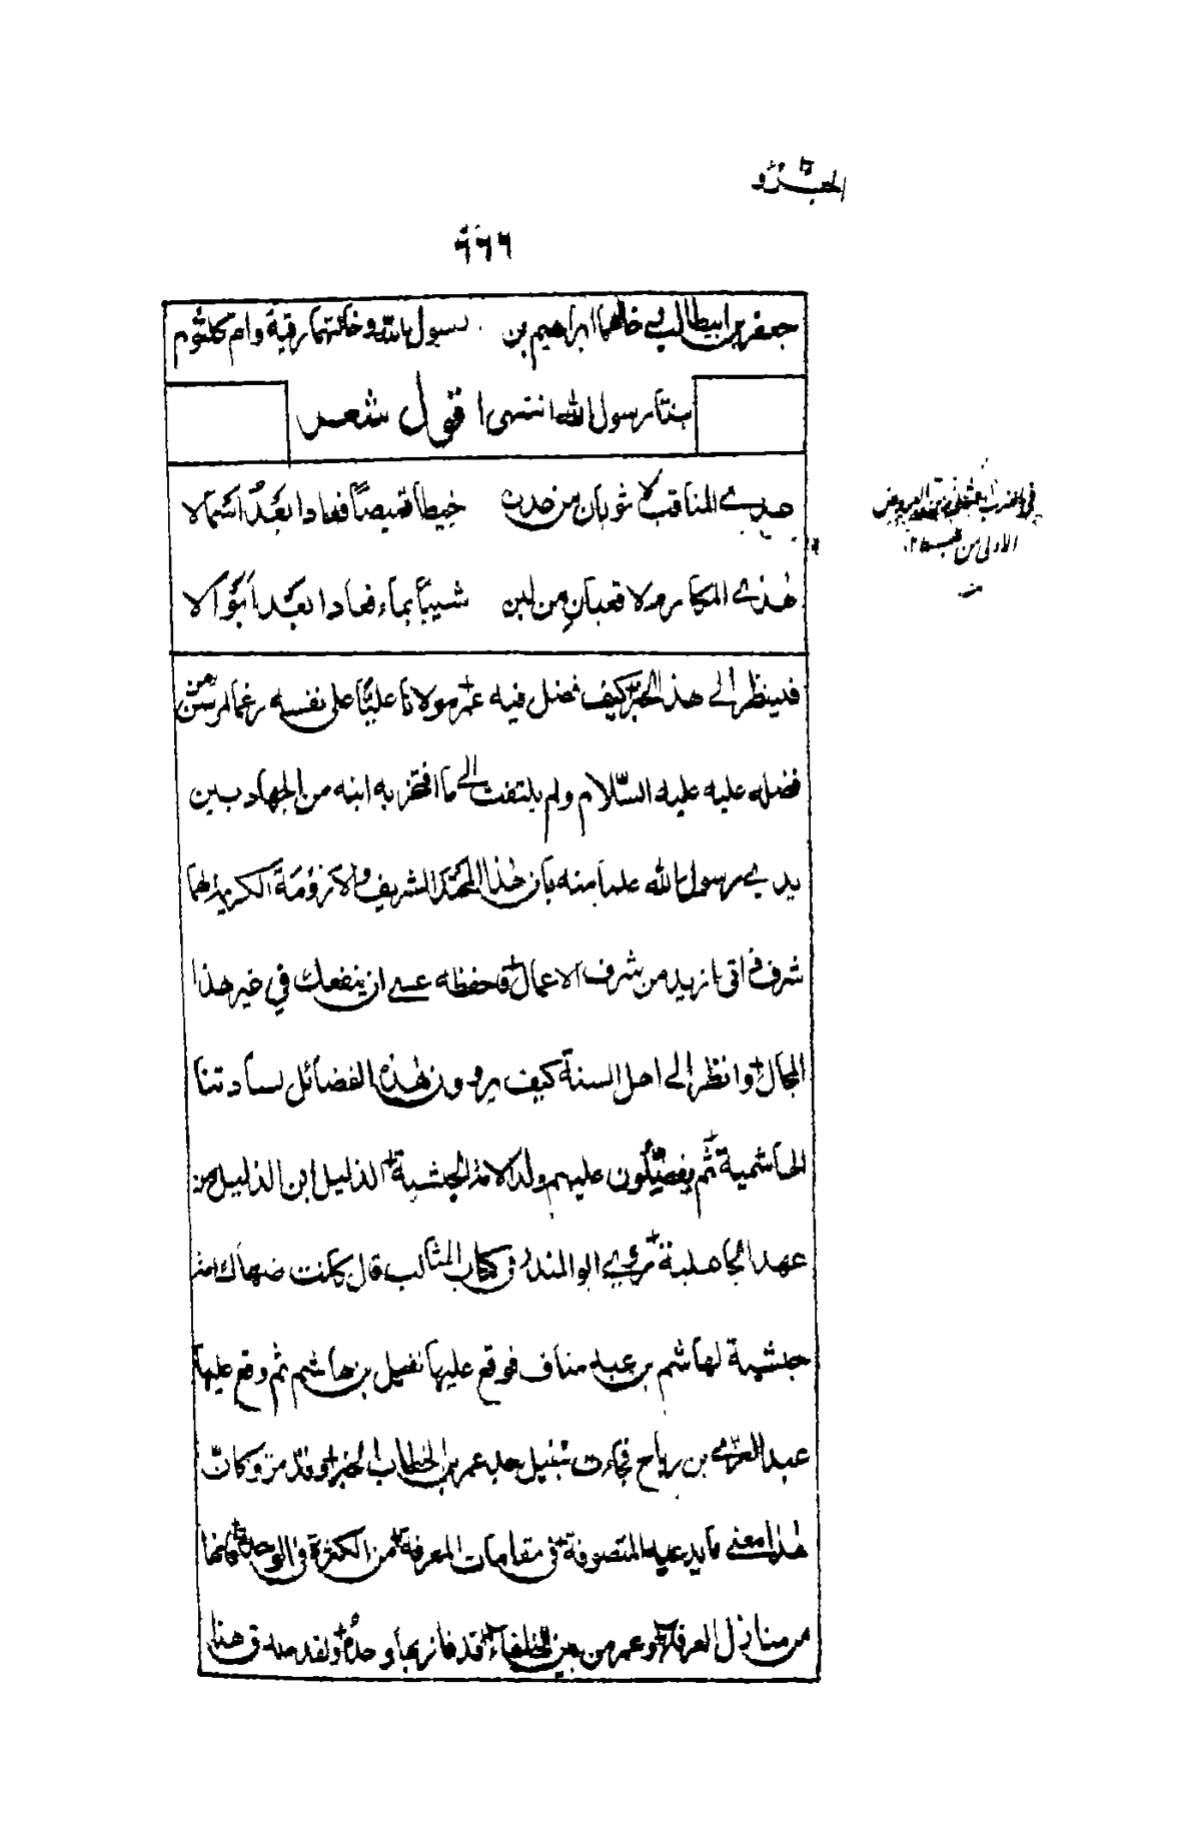 ٦٦٦
جعفر بن ابيطالب خالهما ابراهيم بن رسول الله وخالتهما رقية وام كلثوم
بنتا رسول الله انتهى اقول شعر
هذي المناقب لا ثوبان من عدن خيطا قميصًا فعادا بعدُ اسمالا
هذي المكارم لا قعبان من لبن شيبا بماء فعادا بعد ابوالا
فلينظر الى هذا الخبر كيف فضل فيه عمر مولانا عليًّا على نفسه رغما لمن
فضله عليه عليه السّلام ولم يلتفت الى ما افتخر به ابنه من الجهاد بين
يدي رسول الله علما منه بان هذا المحتد الشريف والارومة الكريمة لهما
شرف ذاتي ازيد من شرف الاعمال فاحفظه عسى ان ينفعك في غير هذا
المجال وانظر الى اهل السنة كيف يروون هذه الفضائل لساداتنا
الهاشمية ثم يفضّلون عليهم ولد الامة الحبشية الذليل ابن الذليل من
عهد الجاهلية روى ابو المنذر في كتاب المثالب قال كانت ضهاك امة
حبشية لهاشم بن عبد مناف فوقع عليها نفيل بن هاشم ثم وقع عليها
عبد العزى بن رياح فجاءت بنفيل جد عمر بن الخطاب الخبر وقد مرّ وكانّ
هذا معنى ما يدعيه المتصوفة في مقامات المعرفة من الكثرة في الوحدة فانها
من منازل العرفاء وعمر من بين الخلفاء قد فاز بها وحده ولقد صدق هنا